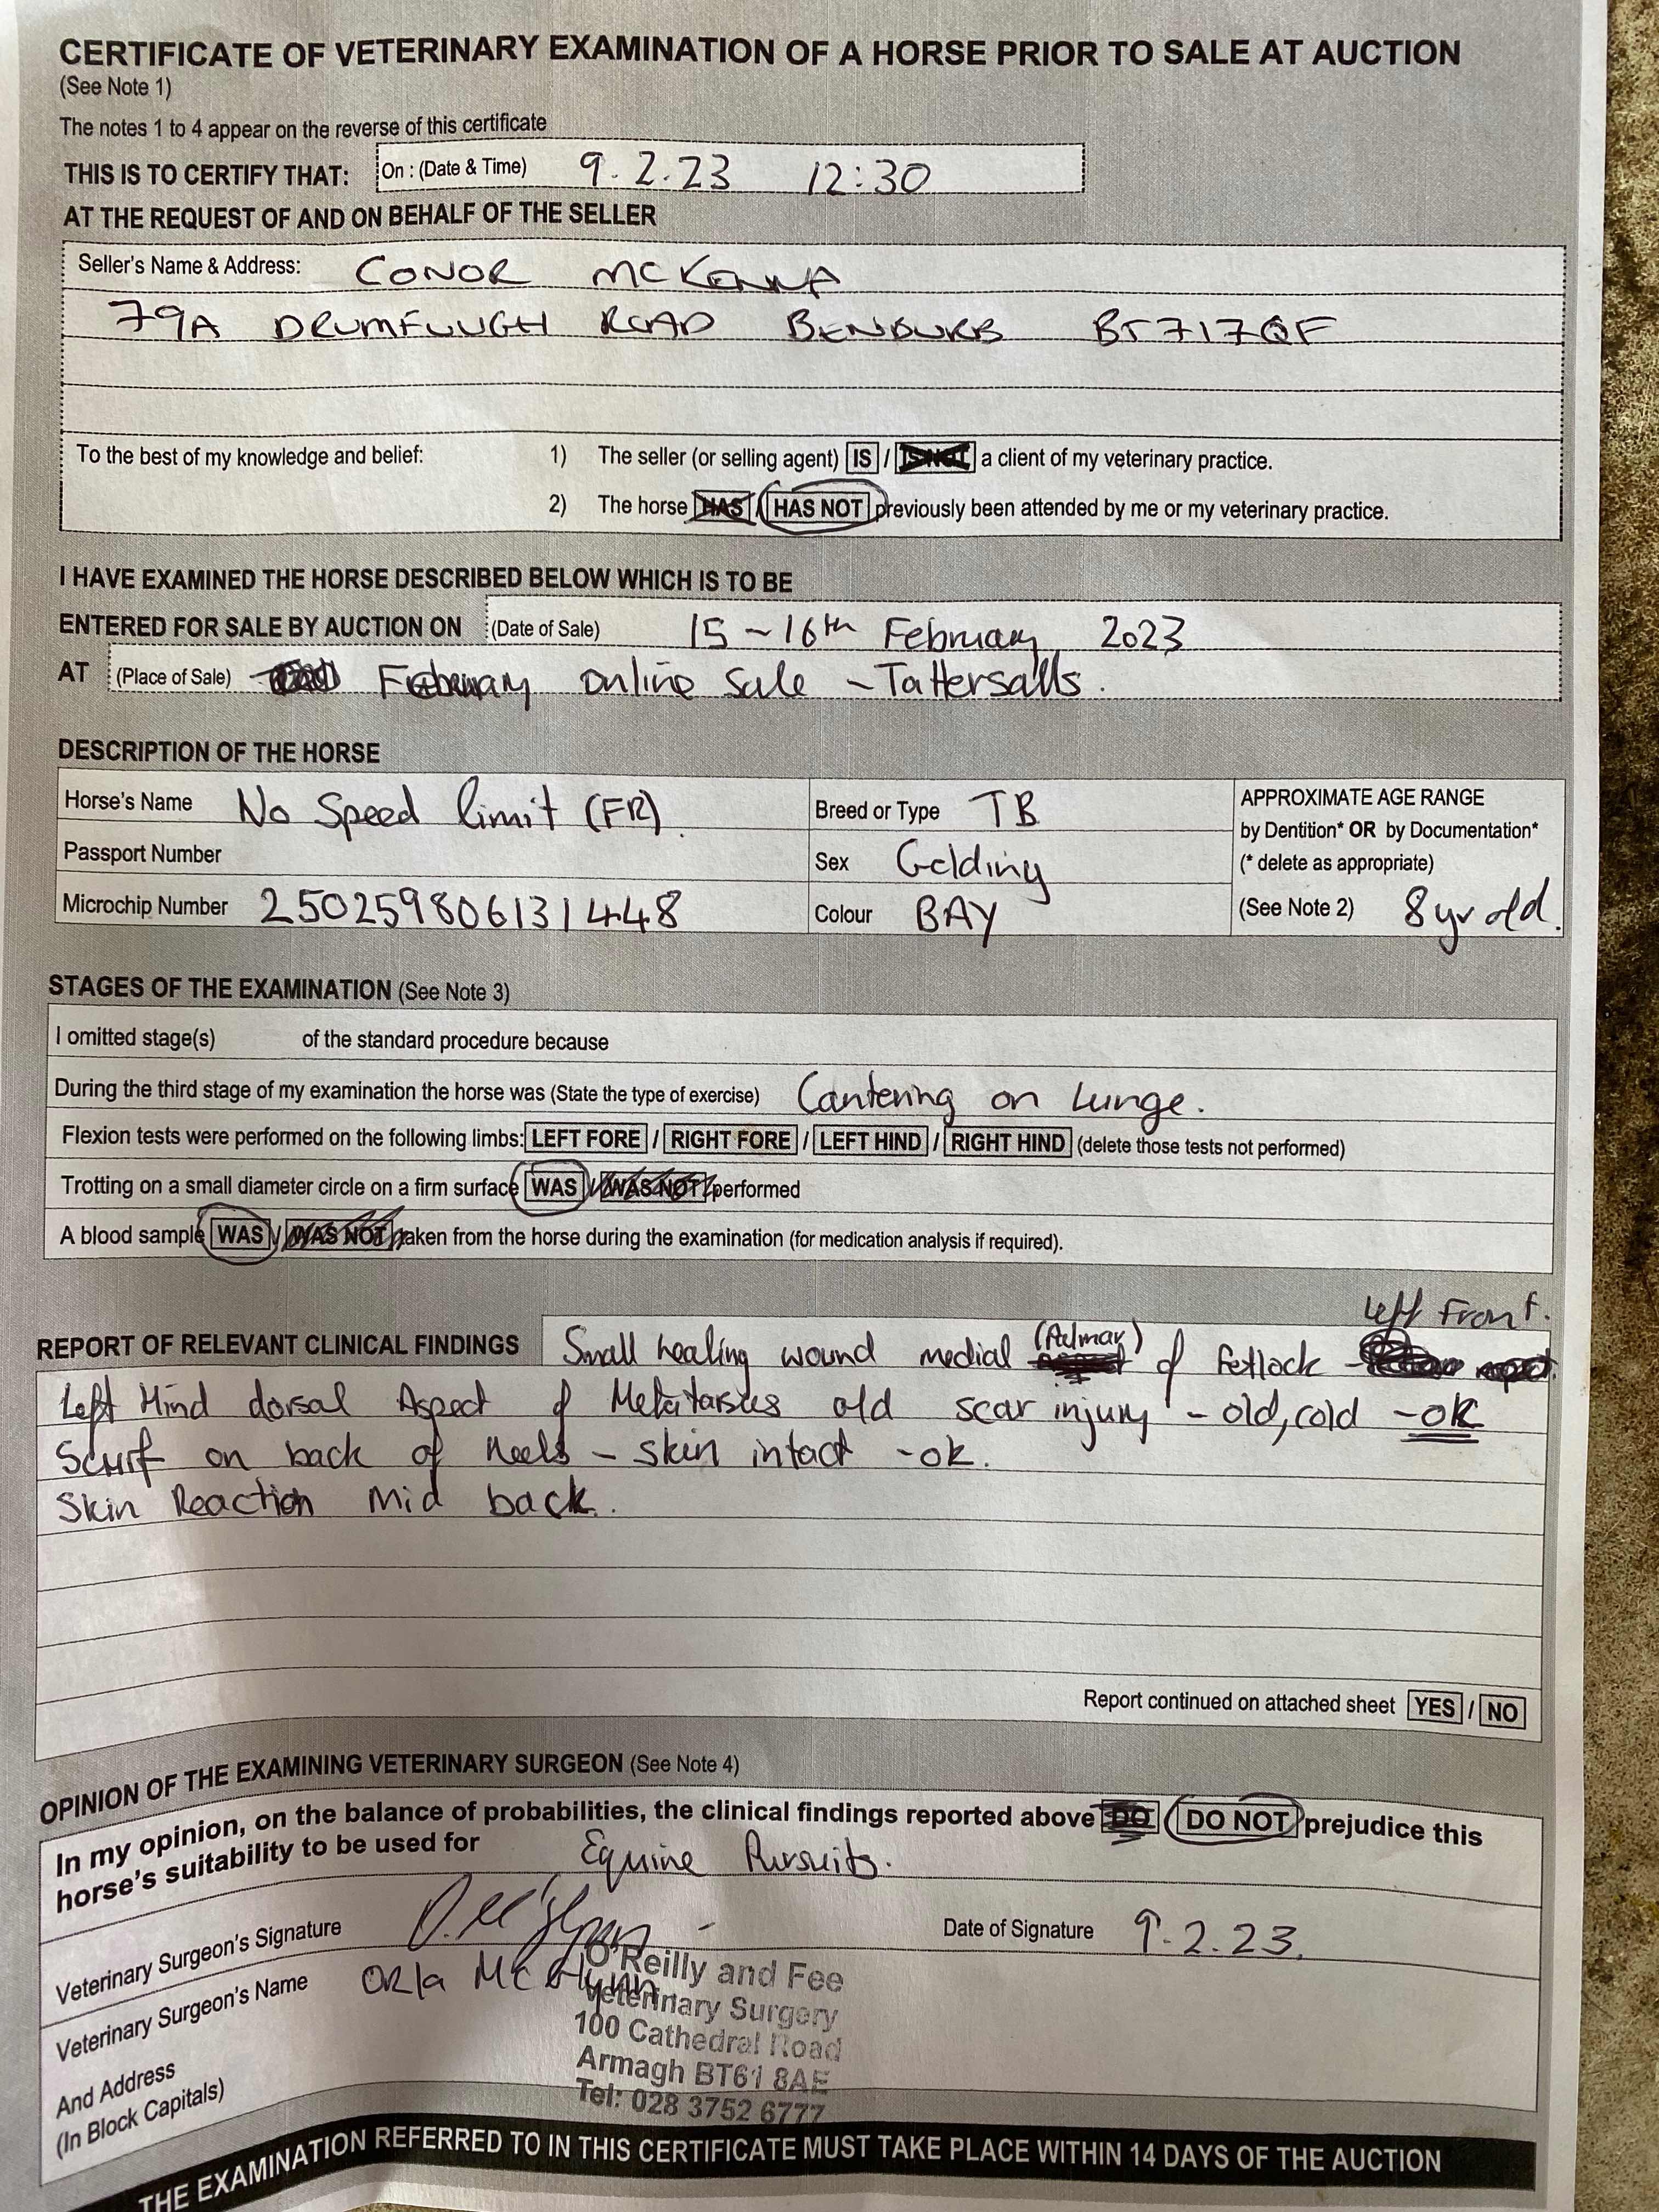 CERTIFICATE OF VETERINARY EXAMINATION OF A HORSE PRIOR TO SALE AT AUCTION
(See Note 1)
The notes 1 to 4 appear on the reverse of this certificate
THIS IS TO CERTIFY THAT: On : (Date & Time) 9.2.23 12:30
AT THE REQUEST OF AND ON BEHALF OF THE SELLER
Seller's Name & Address: CONOR MCKENNA
79A DRUMFLUGH ROAD BENBURB BT717QF
To the best of my knowledge and belief: 1) The seller (or selling agent) IS / IS NOT a client of my veterinary practice.
2) The horse HAS / HAS NOT previously been attended by me or my veterinary practice.
I HAVE EXAMINED THE HORSE DESCRIBED BELOW WHICH IS TO BE
ENTERED FOR SALE BY AUCTION ON (Date of Sale) 15-16th February 2023
AT (Place of Sale) February online sale - Tattersalls.
DESCRIPTION OF THE HORSE
Horse's Name No Speed limit (FR). Breed or Type TB APPROXIMATE AGE RANGE
by Dentition* OR by Documentation*
Passport Number Sex Gelding (* delete as appropriate)
Microchip Number 250259806131448 Colour BAY (See Note 2) 8yr old.
STAGES OF THE EXAMINATION (See Note 3)
I omitted stage(s) of the standard procedure because
During the third stage of my examination the horse was (State the type of exercise) Cantering on Lunge.
Flexion tests were performed on the following limbs: LEFT FORE / RIGHT FORE / LEFT HIND / RIGHT HIND (delete those tests not performed)
Trotting on a small diameter circle on a firm surface WAS / WAS NOT performed
A blood sample WAS / WAS NOT taken from the horse during the examination (for medication analysis if required).
REPORT OF RELEVANT CLINICAL FINDINGS Small healing wound medial (Palmar) of fetlock - left Front.
Left Hind dorsal Aspect of Metatarsus old scar injury - old, cold - OK
Scurf on back of heels - skin intact - ok.
Skin Reaction Mid back.
Report continued on attached sheet YES / NO
OPINION OF THE EXAMINING VETERINARY SURGEON (See Note 4)
In my opinion, on the balance of probabilities, the clinical findings reported above DO / DO NOT prejudice this
horse's suitability to be used for Equine Pursuits.
Veterinary Surgeon's Signature Date of Signature 9.2.23.
Veterinary Surgeon's Name Orla
And Address
(In Block Capitals)
O'Reilly and Fee
Veterinary Surgery
100 Cathedral Road
Armagh BT61 8AE
Tel: 028 3752 6777
THE EXAMINATION REFERRED TO IN THIS CERTIFICATE MUST TAKE PLACE WITHIN 14 DAYS OF THE AUCTION